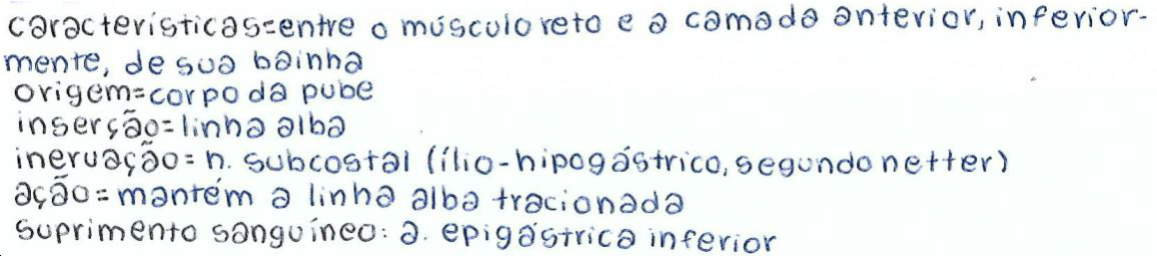 características=entre o músculo reto e a camada anterior, inferior-
mente, de sua bainha
origem=corpo da pube
inserção=linha alba
inervação=n. subcostal (ílio-hipogástrico, segundo netter)
ação=mantém a linha alba tracionada
suprimento sanguíneo: a. epigástrica inferior